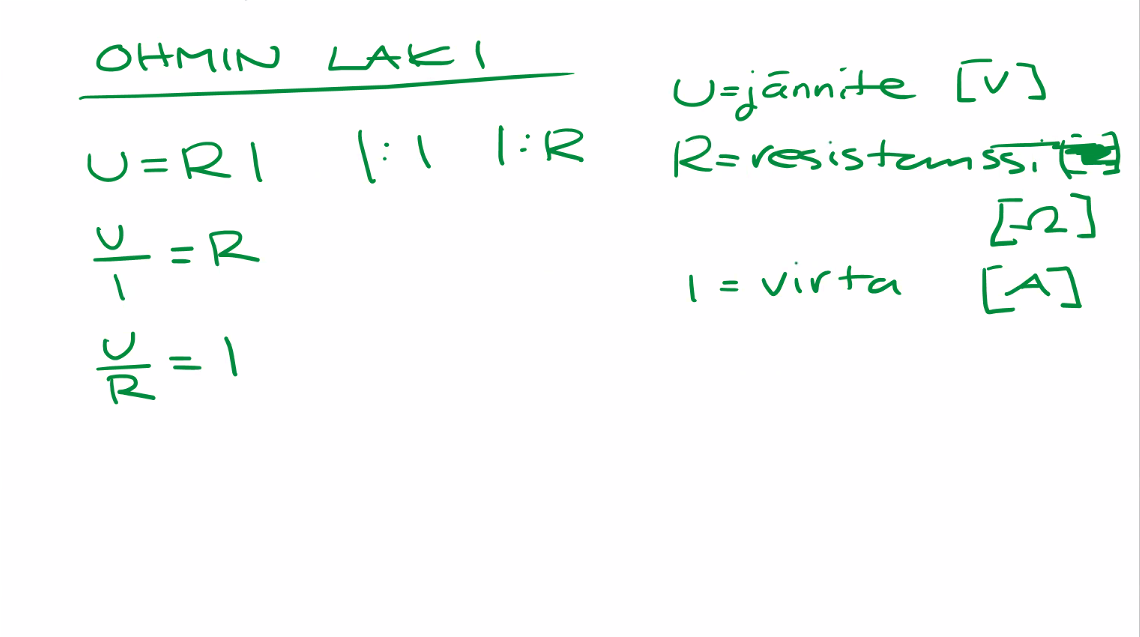 OHMIN LAKI
U = R I |: I |: R
U/I = R
U/R = I
U = jännite [V]
R = resistanssi
[Ω]
I = virta [A]